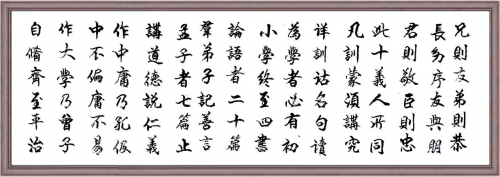 兄則友弟則恭
長幼序友與朋
君則敬臣則忠
此十義人所同
凡訓蒙須講究
詳訓詁名句讀
為學者必有初
小學終至四書
論語者二十篇
羣弟子記善言
孟子者七篇止
講道德說仁義
作中庸乃孔伋
中不偏庸不易
作大學乃曾子
自脩齊至平治